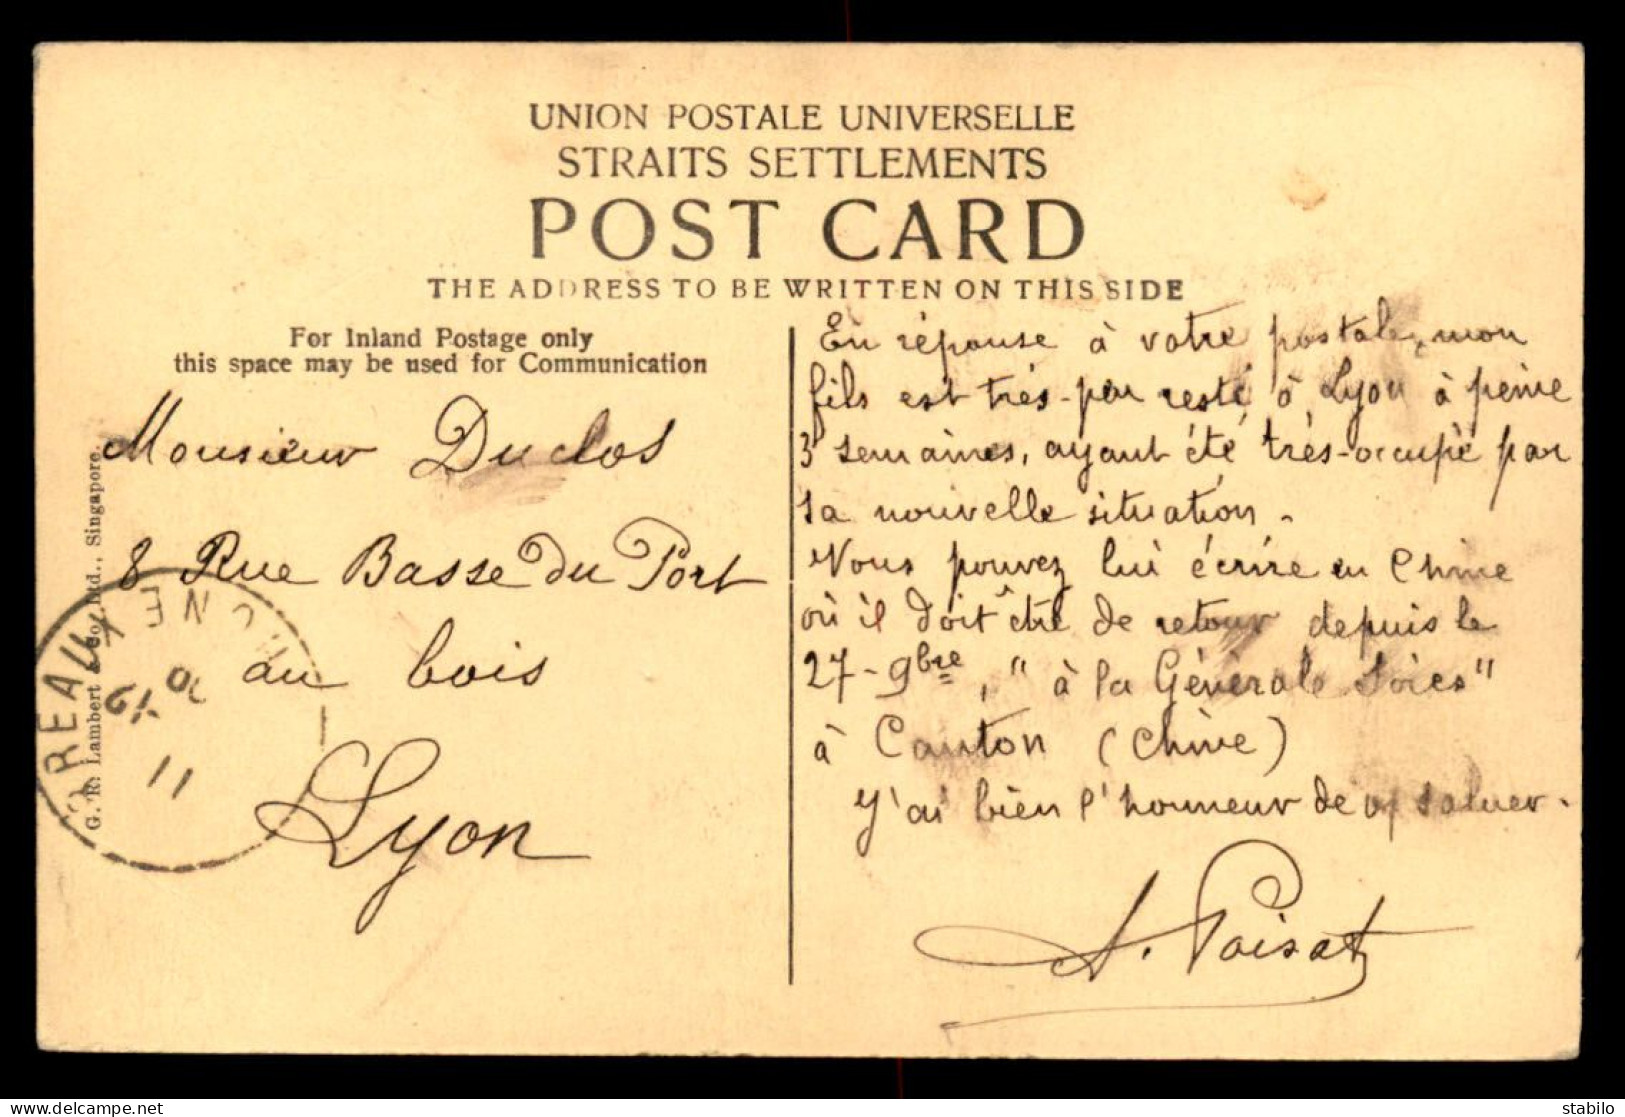 UNION POSTALE UNIVERSELLE
STRAITS SETTLEMENTS
POST CARD
THE ADDRESS TO BE WRITTEN ON THIS SIDE
For Inland Postage only
this space may be used for Communication
Monsieur Duclos
8 Rue Basse du Port
au bois
Lyon
G. R. Lambert & Co., Ltd., Singapore.
11
En réponse à votre postale, mon
fils est très-peu resté à Lyon à peine
3 semaines, ayant été très-occupé par
sa nouvelle situation.
Vous pouvez lui écrire en Chine
où il doit être de retour depuis le
27-9bre, "à la Générale Soies"
à Canton (Chine)
J'ai bien l'honneur de vs saluer.
A. Poisat
delcampe.net
stabilo